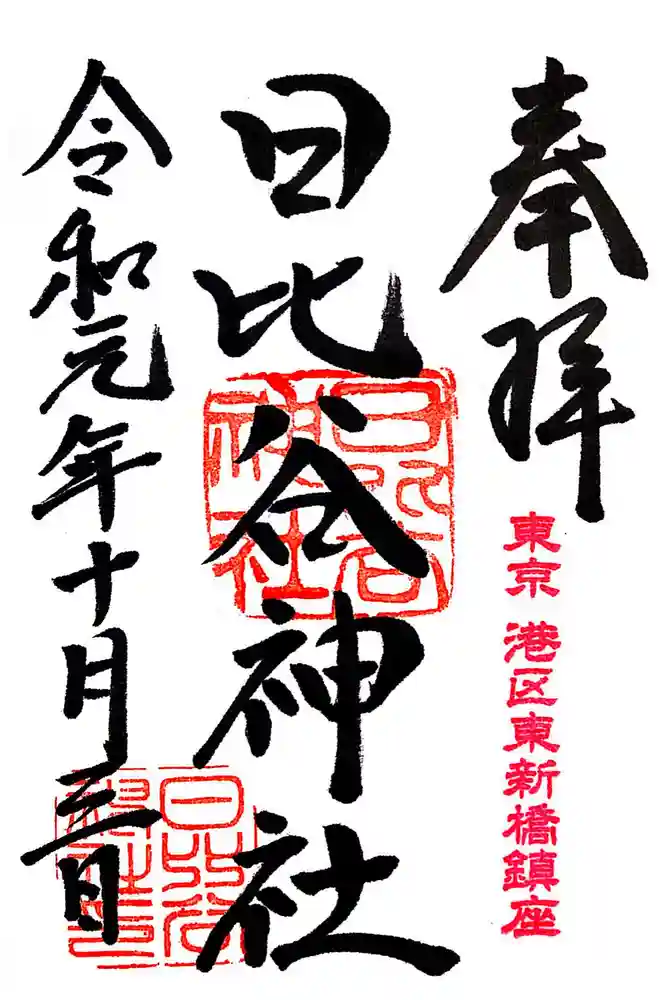 奉拝
東京 港区東新橋鎮座
日比谷神社
日比谷
神社
令和元年十月三日
日比谷
神社之印